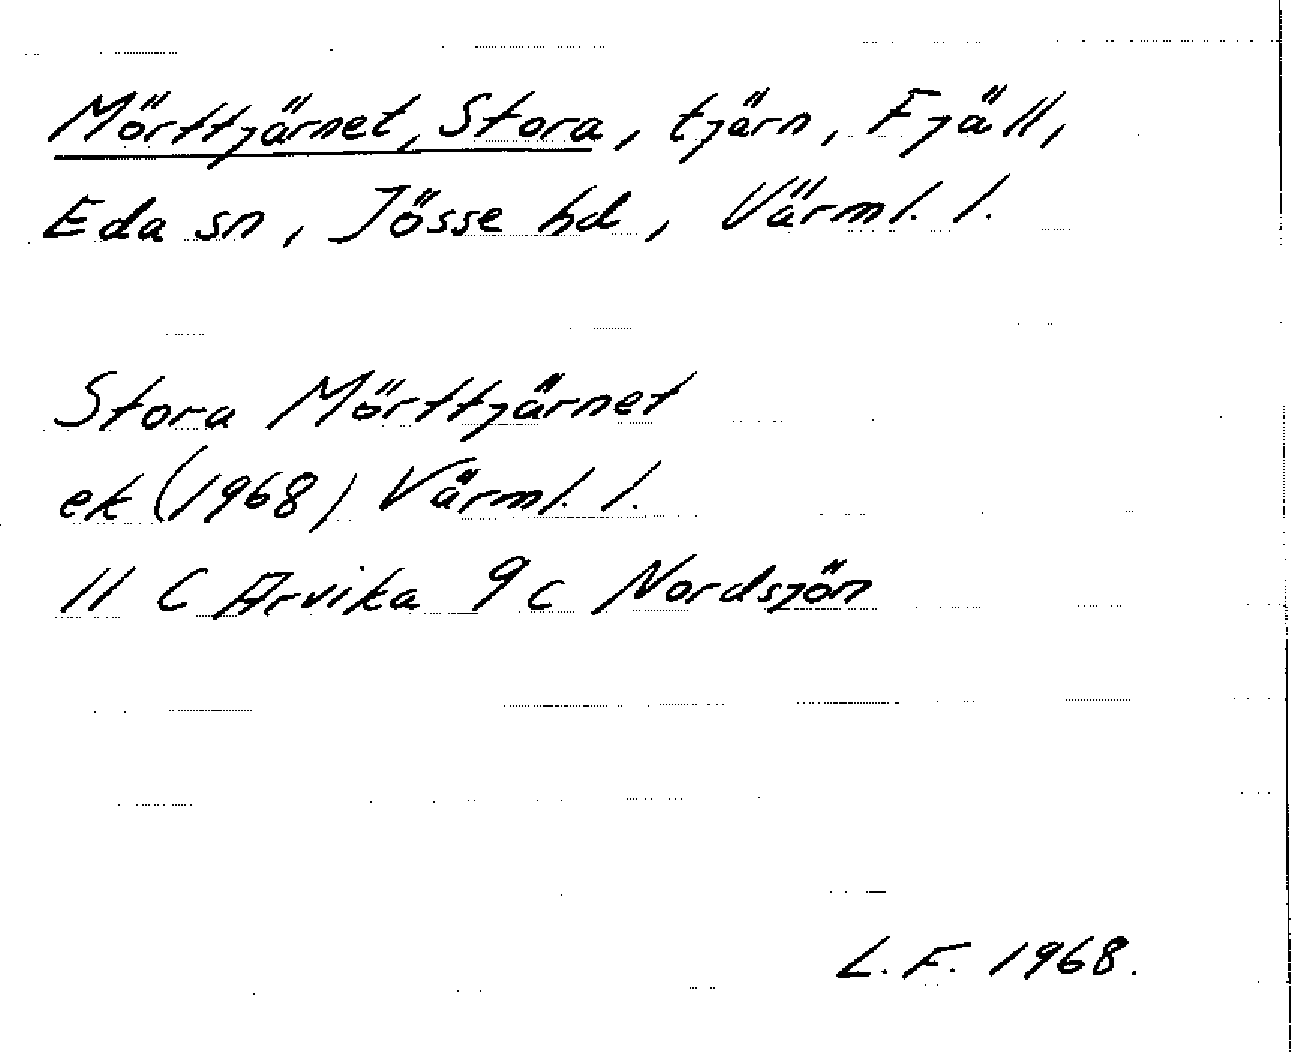 Mörttjärnet, Stora, tjärn, Fjäll,
Eda sn, Jösse hd, Värml. l.
Stora Mörttjärnet
ek (1968) Värml. l.
11 C Arvika 9 c Nordsjön
L. F. 1968.